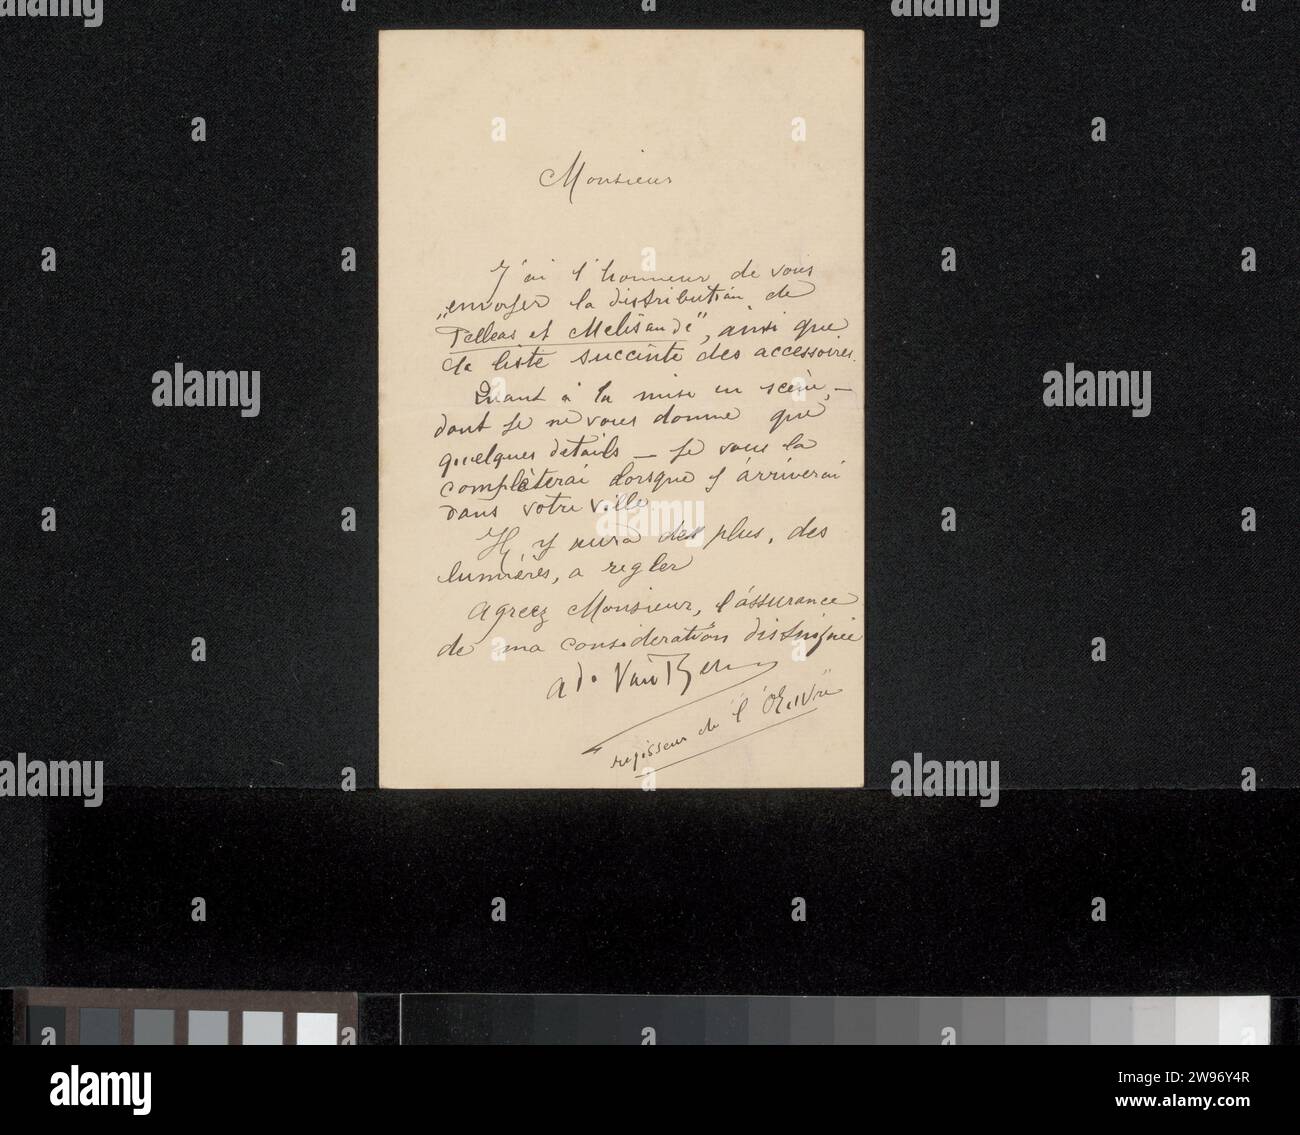 Monsieur
J'ai l'honneur de vous
„envoyer la distribution de
Pelleas et Melisande", ainsi que
la liste succinte des accessoires.
Quant à la mise en scène, —
dont je ne vous donne que
quelques details — je vous la
complèterai lorsque j'arriverai
dans votre ville.
Il y aura des plus, des
lumières, a regler
agreez Monsieur, l'assurance
de ma consideration distinguée
ad. Van Bell
regisseur de "l'Œuvre"
alamy
Image ID: 2W96Y4R
www.alamy.com